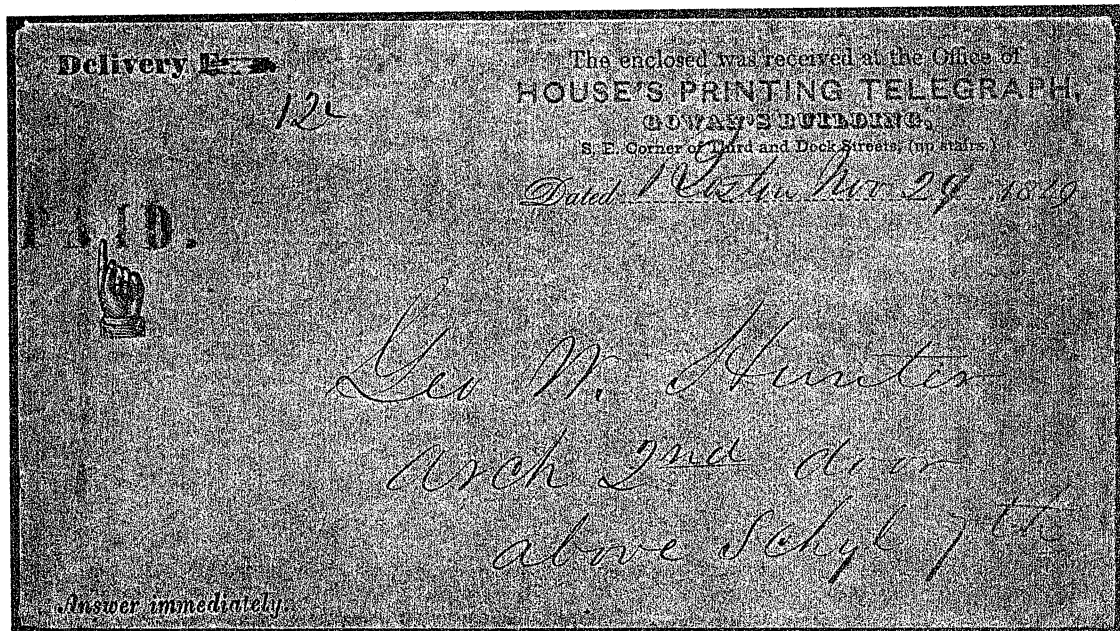 Delivery
12
The enclosed was received at the Office of
HOUSE'S PRINTING TELEGRAPH,
GOWAN'S BUILDING,
S. E. Corner of Third and Dock Streets, (up stairs.)
Dated Boston Nov 29 1849
PAID.
Geo W. Hunter
Arch 2nd door
above Schyl 7th
Answer immediately.